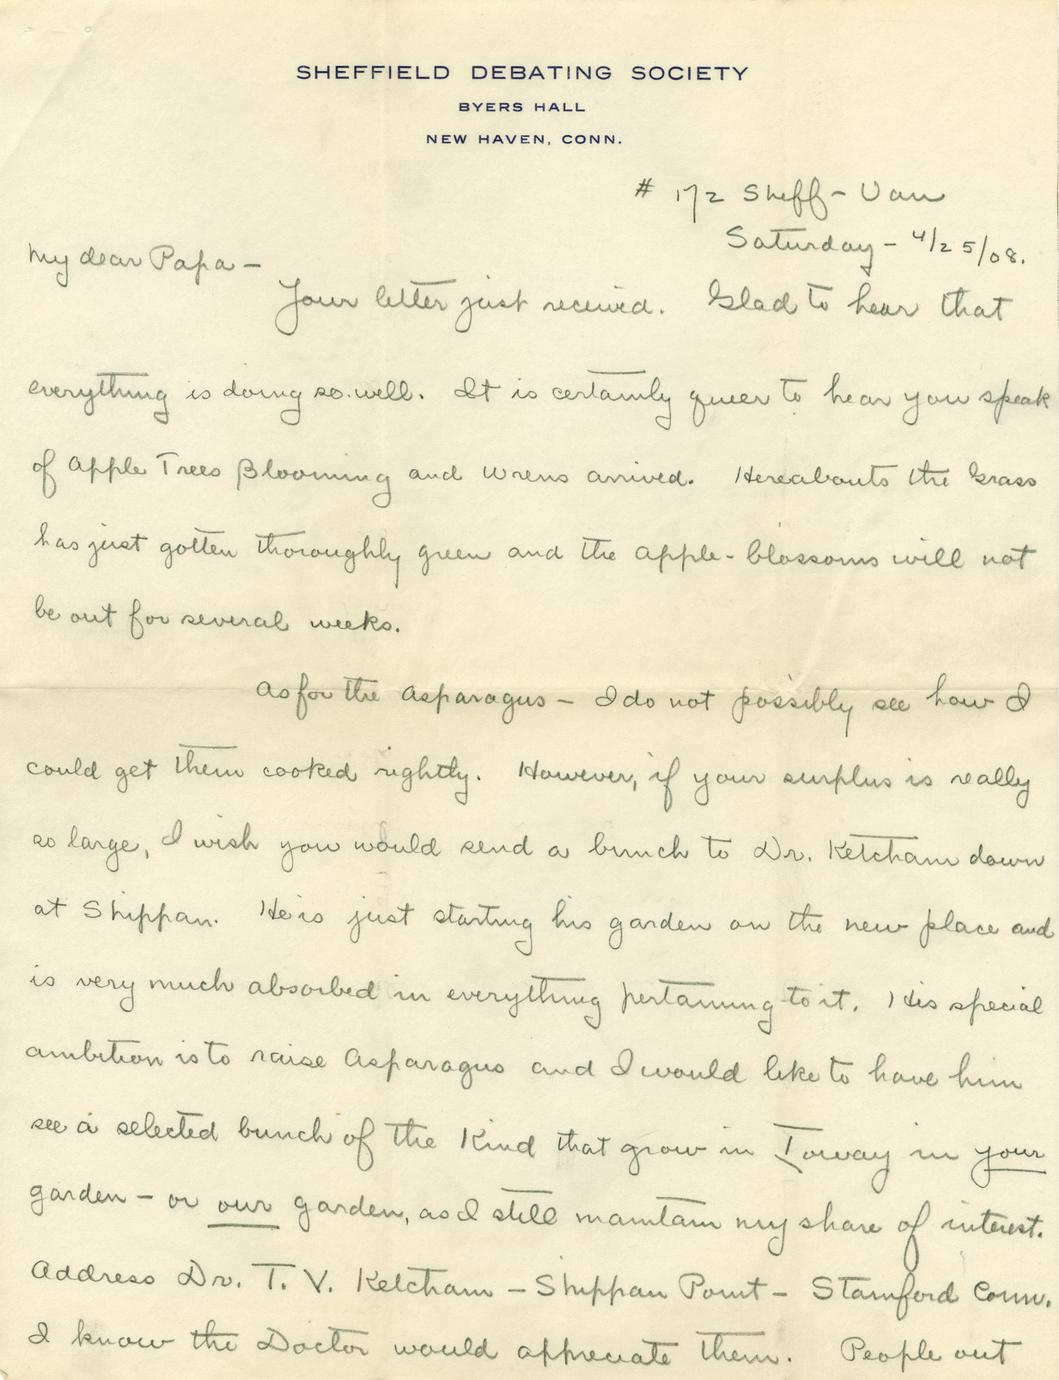 SHEFFIELD DEBATING SOCIETY
BYERS HALL
NEW HAVEN, CONN.
# 172 Sheff - Van
Saturday - 4/25/08.
My dear Papa -
Your letter just received. Glad to hear that
everything is doing so well. It is certainly queer to hear you speak
of Apple Trees Blooming and Wrens arrived. Hereabouts the Grass
has just gotten thoroughly green and the apple-blossoms will not
be out for several weeks.
As for the Asparagus - I do not possibly see how I
could get them cooked rightly. However, if your surplus is really
so large, I wish you would send a bunch to Dr. Ketcham down
at Shippan. He is just starting his garden on the new place and
is very much absorbed in everything pertaining to it. His special
ambition is to raise Asparagus and I would like to have him
see a selected bunch of the Kind that grow in Ioway in your
garden - or our garden, as I still maintain my share of interest.
Address Dr. T. V. Ketcham - Shippan Point - Stamford Conn.
I know the Doctor would appreciate them. People out